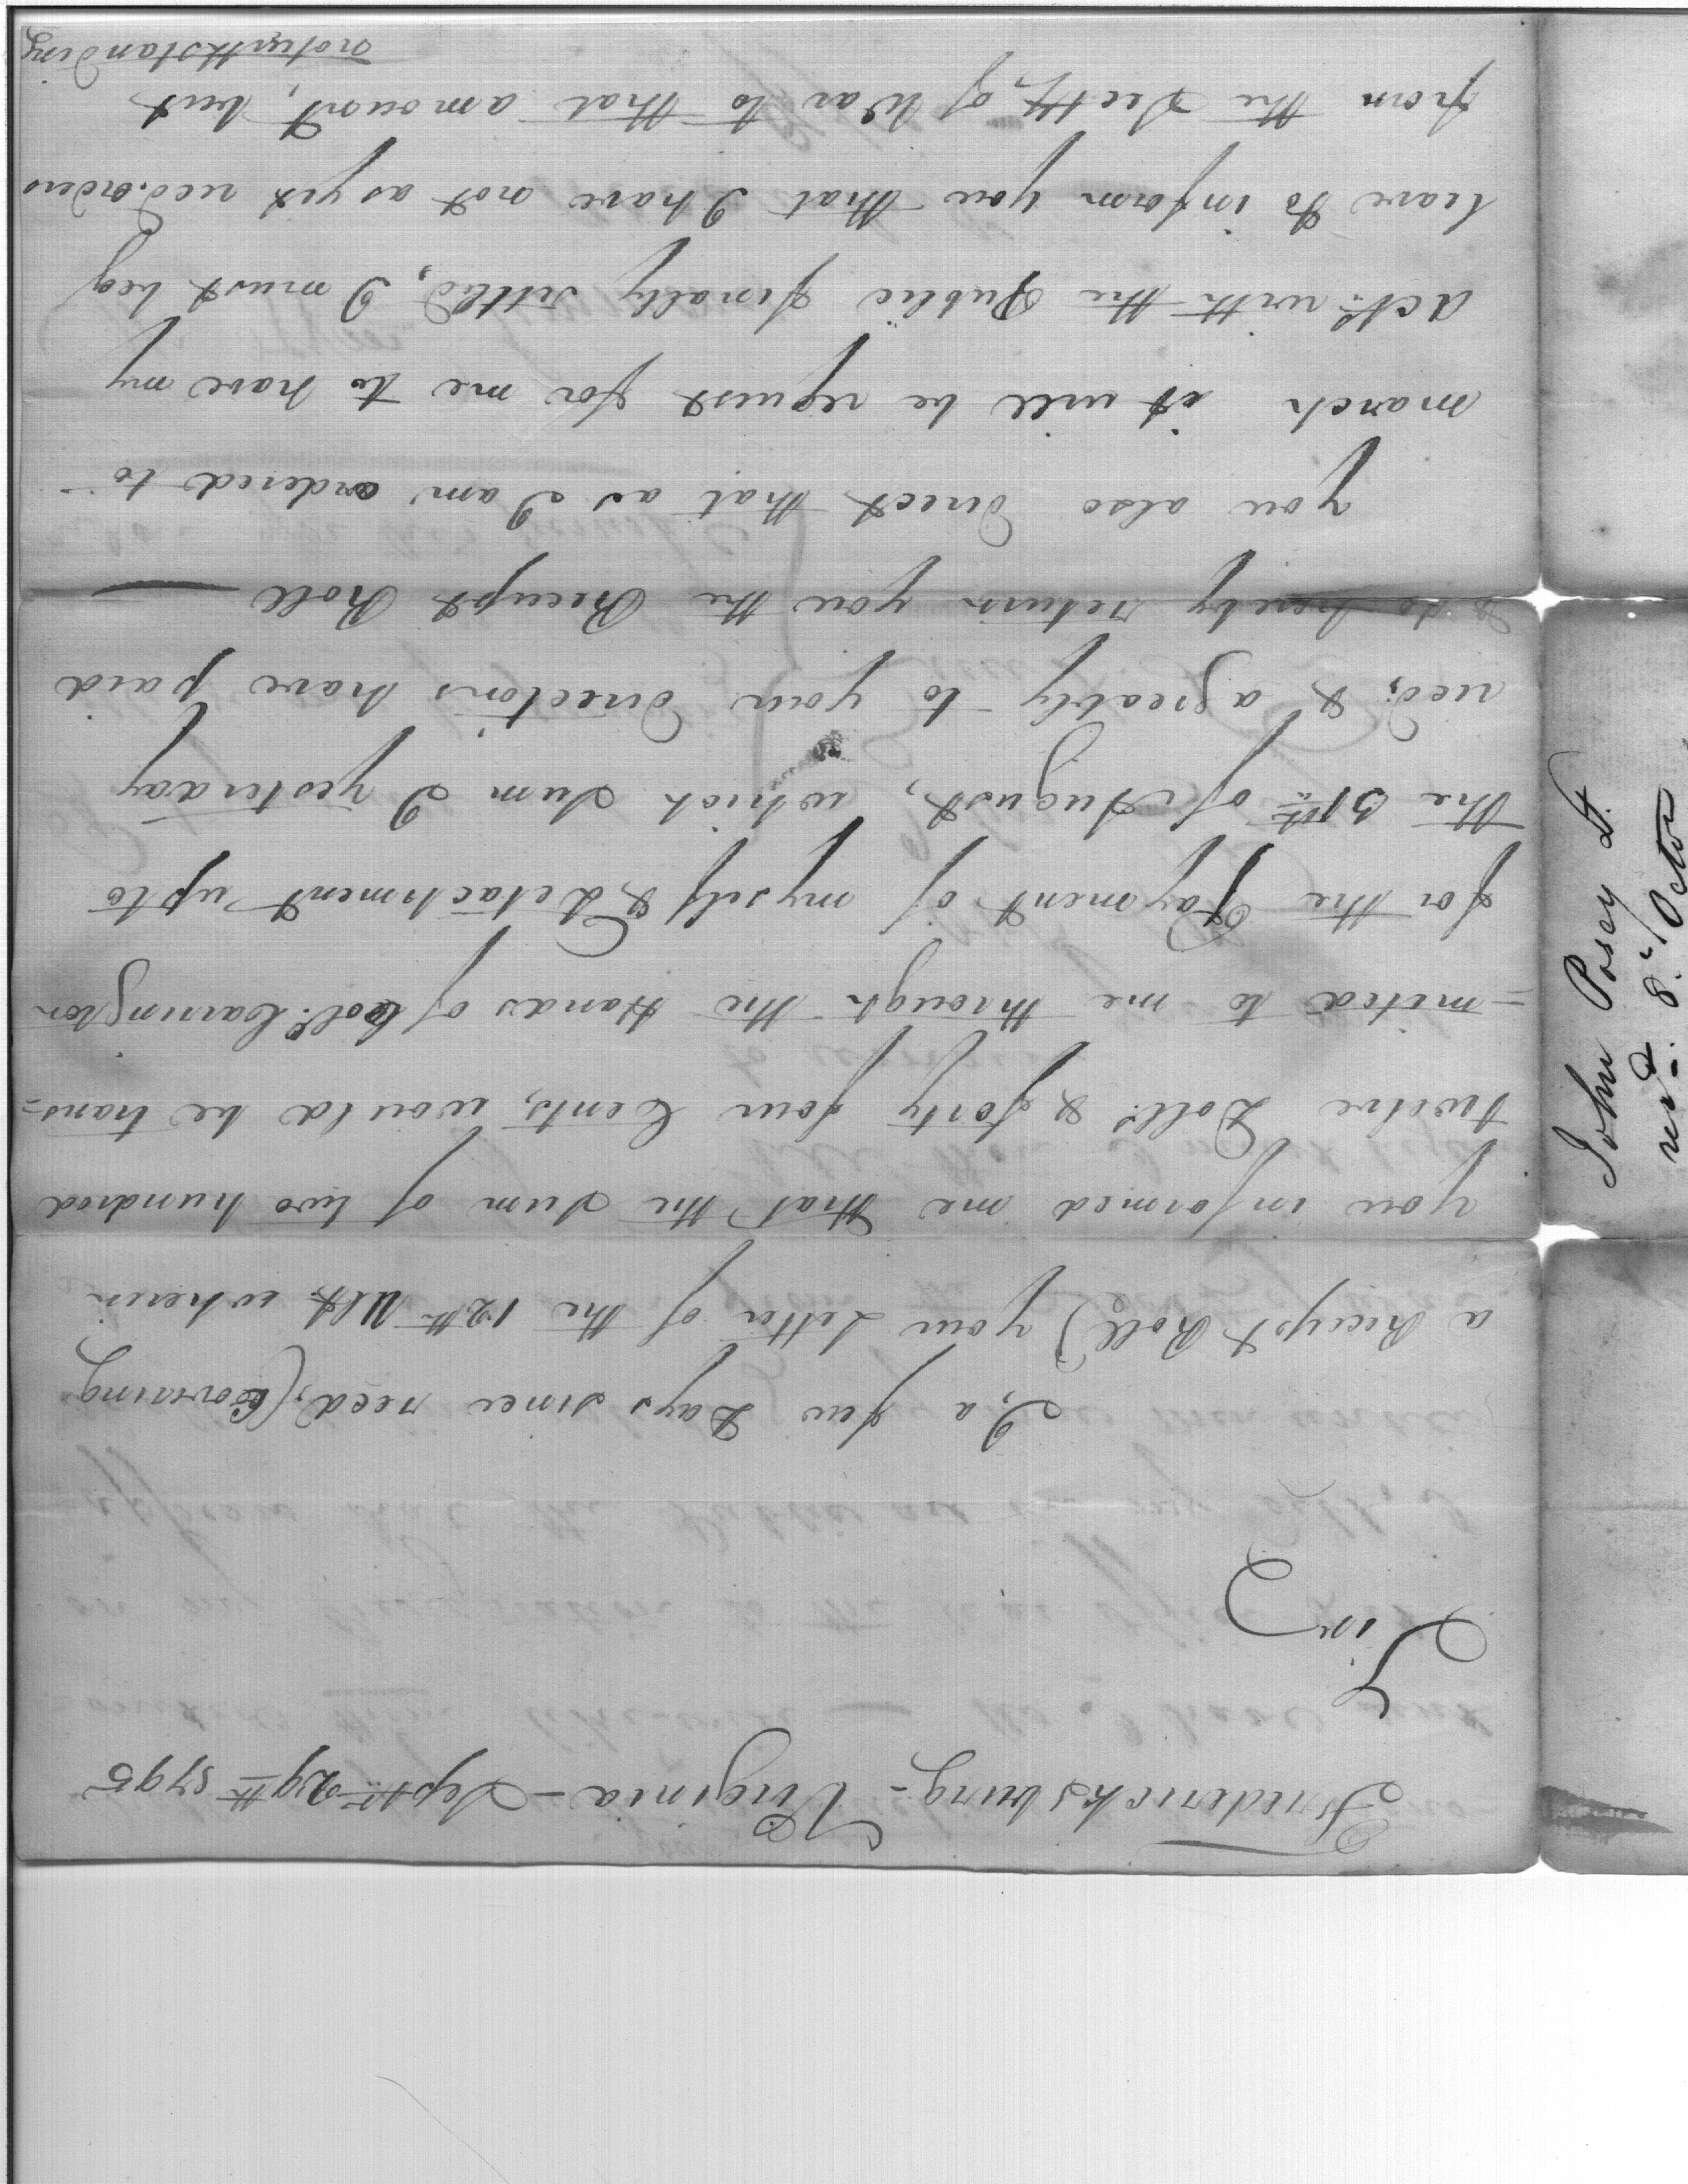 Fredericksburg - Virginia - Septr. 29th 1795
Sir
I, a few Days since recd, (Covering
a Receipt Roll) your Letter of the 12th Ult. wherein
you informed me that the Sum of two hundred
twelve Dolls. & forty four Cents, would be trans=
=mited to me through the Hands of Col. Carrington
for the Payment of myself & Detachment up to
the 31st. of August, which Sum I yesterday
recd; & agreably to your directions have paid
& do hereby return you the Receipt Roll —
you also direct that as I am ordered to
march it will be requist for me to have my
Acts. with the Public finally Settled, I must beg
leave to inform you that I have not as yet recd. orders
from the Secrty. of War to that amount, but
notwithstanding
John Posey Lt.
recd. 8. Octor